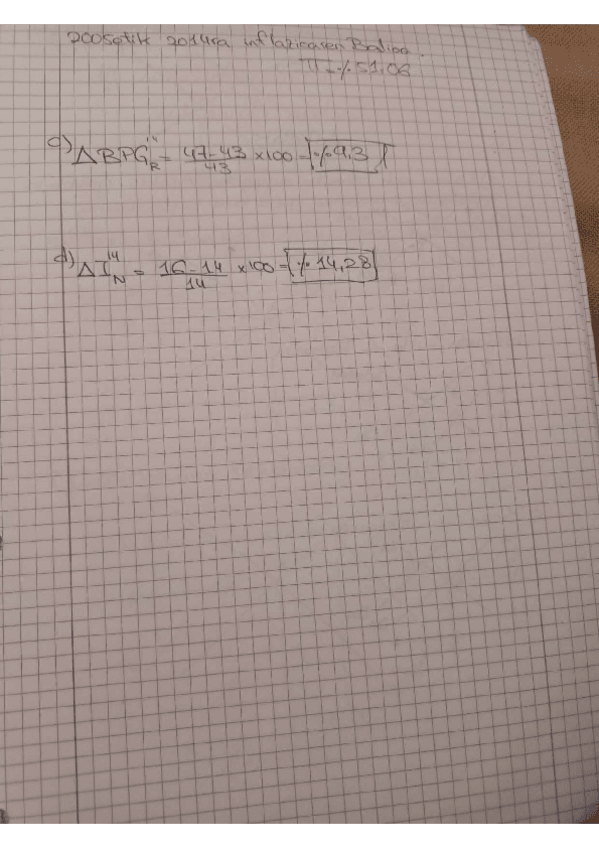 2005etik 2014ra inflazioaren Balioa.
π = % 51,06
c) Δ BPG_R^14 = 47-43/43 × 100 = % 9,3
d) Δ I_N^14 = 16-14/14 × 100 = % 14,28